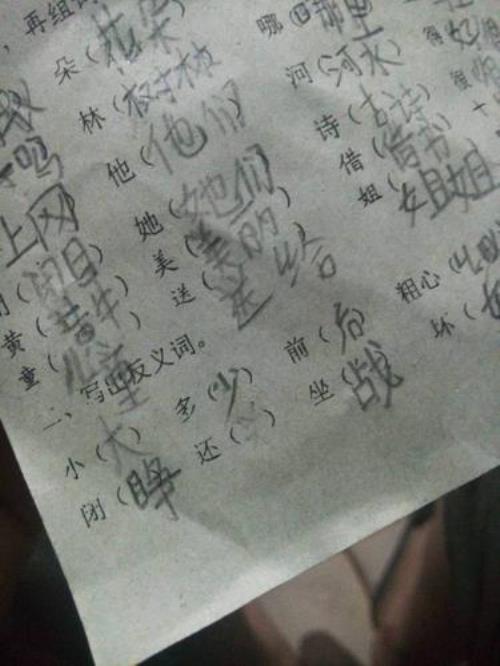 ，再组词
朵（花朵） 哪（哪里
林（树林） 河（河水）
吗 他（他们） 诗（古诗）
上网 她（她们） 借（借书
明日 美（美丽） 姐（姐姐
黄（黄牛 送（送给
童（儿童
一、写出反义词。
小（大） 多（少） 前（后） 粗心（
闭（睁 还（ ） 坐（战 坏（